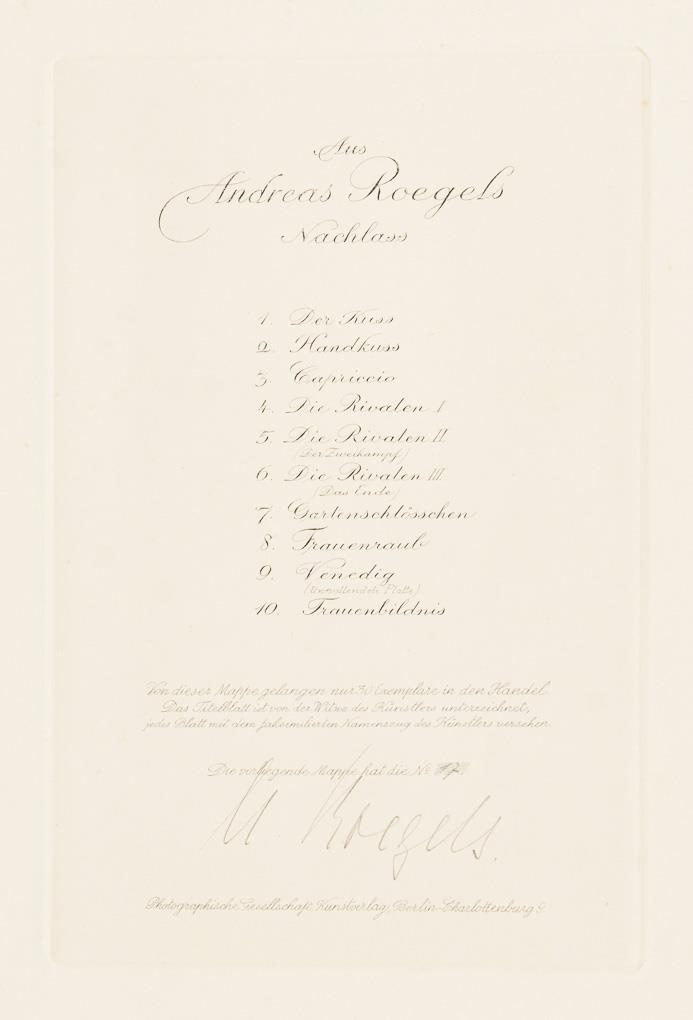 Aus
Andreas Roegels
Nachlass
1. Der Kuss
2. Handkuss
3. Capriccio
4. Die Rivalen I
5. Die Rivalen II
(Der Zweikampf)
6. Die Rivalen III
(Das Ende)
7. Gartenschlösschen
8. Frauenraub
9. Venedig
(Unvollendete Platte)
10. Frauenbildnis
Von dieser Mappe gelangen nur 30 Exemplare in den Handel.
Das Titelblatt ist von der Witwe des Künstlers unterzeichnet,
jedes Blatt mit dem faksimilierten Namenszug des Künstlers versehen.
Die vorliegende Mappe hat die No
Roegels.
Photographische Gesellschaft, Kunstverlag, Berlin-Charlottenburg 9.